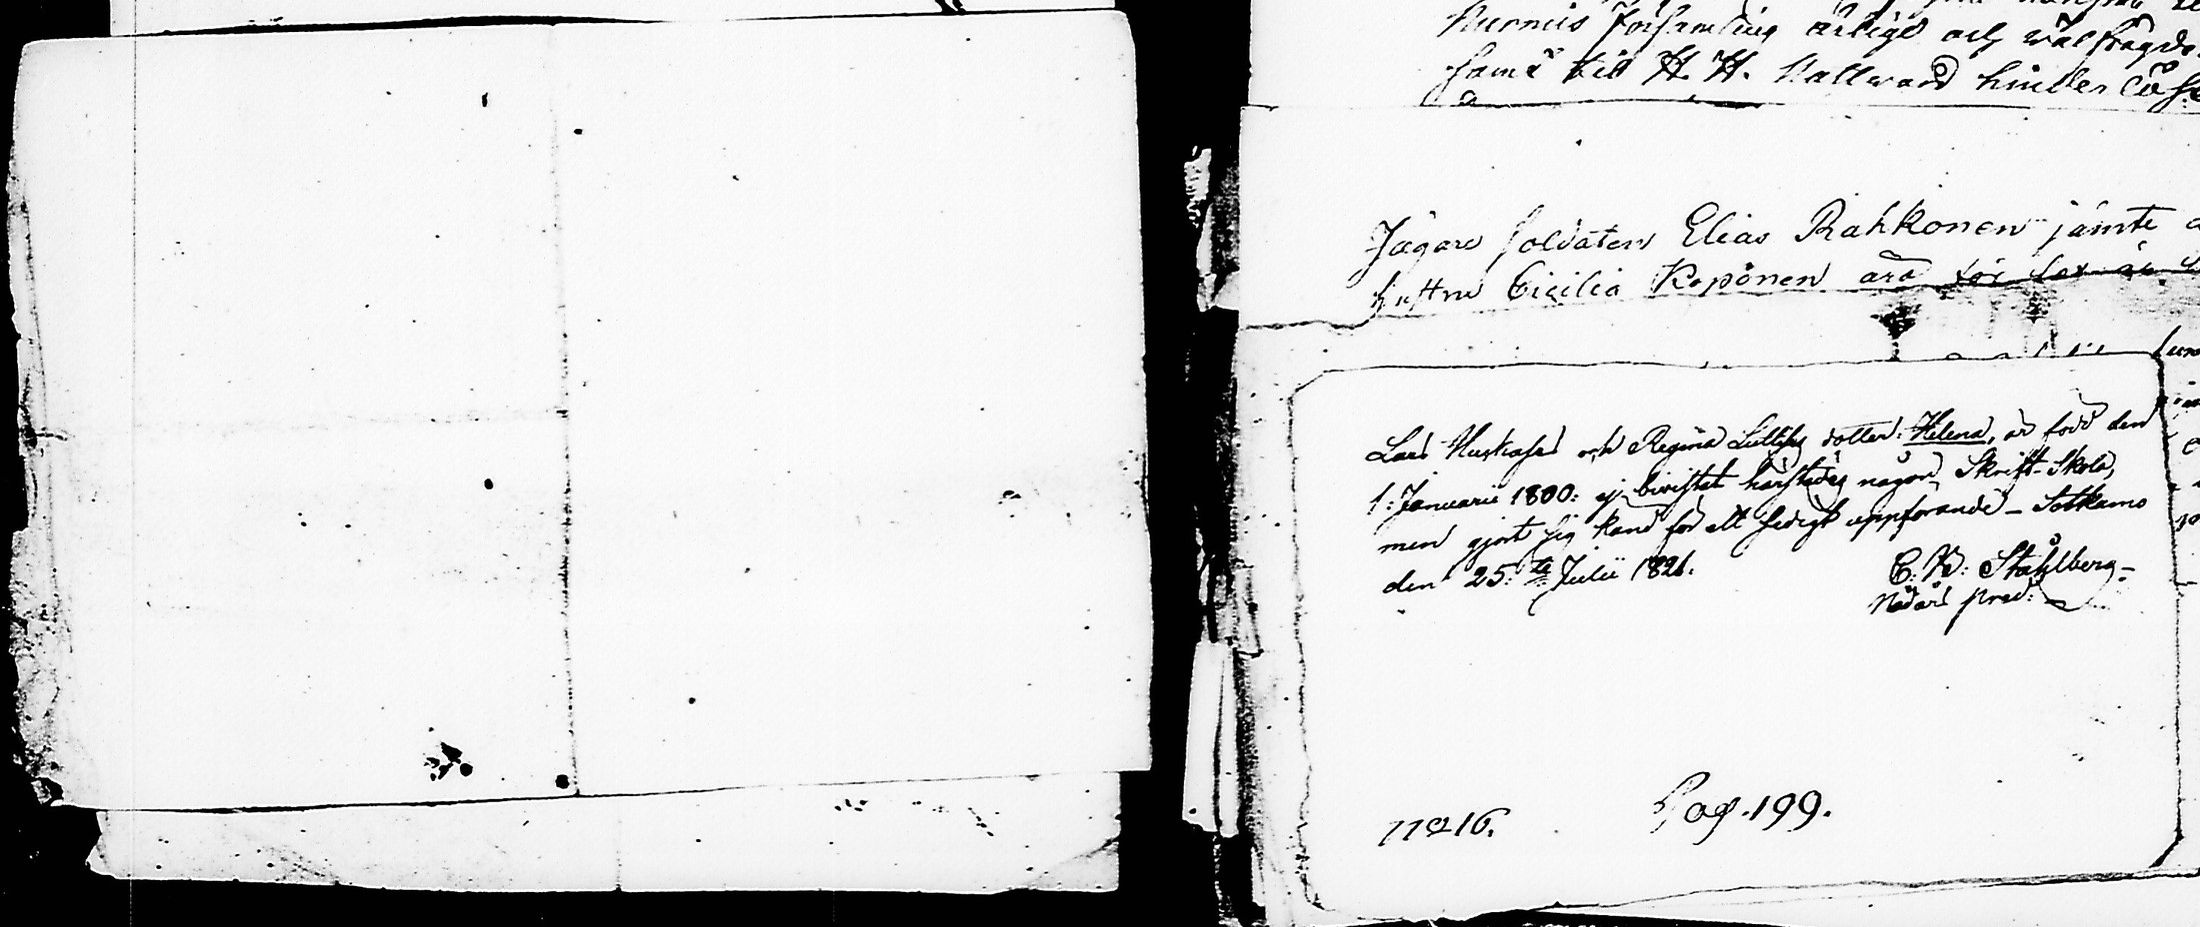 Nurmis Församling ärligt och wälfrägda
samt till H. H. Nattward hinderlöse
Jägare Soldaten Elias Rahkonen jämte
hustru Cicilia Reponen äro för
Lars Huskas och Regina dotter: Helena, är född den
1: Januarii 1800: ej bivistat härstädes någon Skrift-Skola,
men gjort sig känd för ett sedigt uppförande – Sotkamo
den 25:te Julii 1821.
C. W: Ståhlberg
Nådårs pred:
No 16.
Pag. 199.